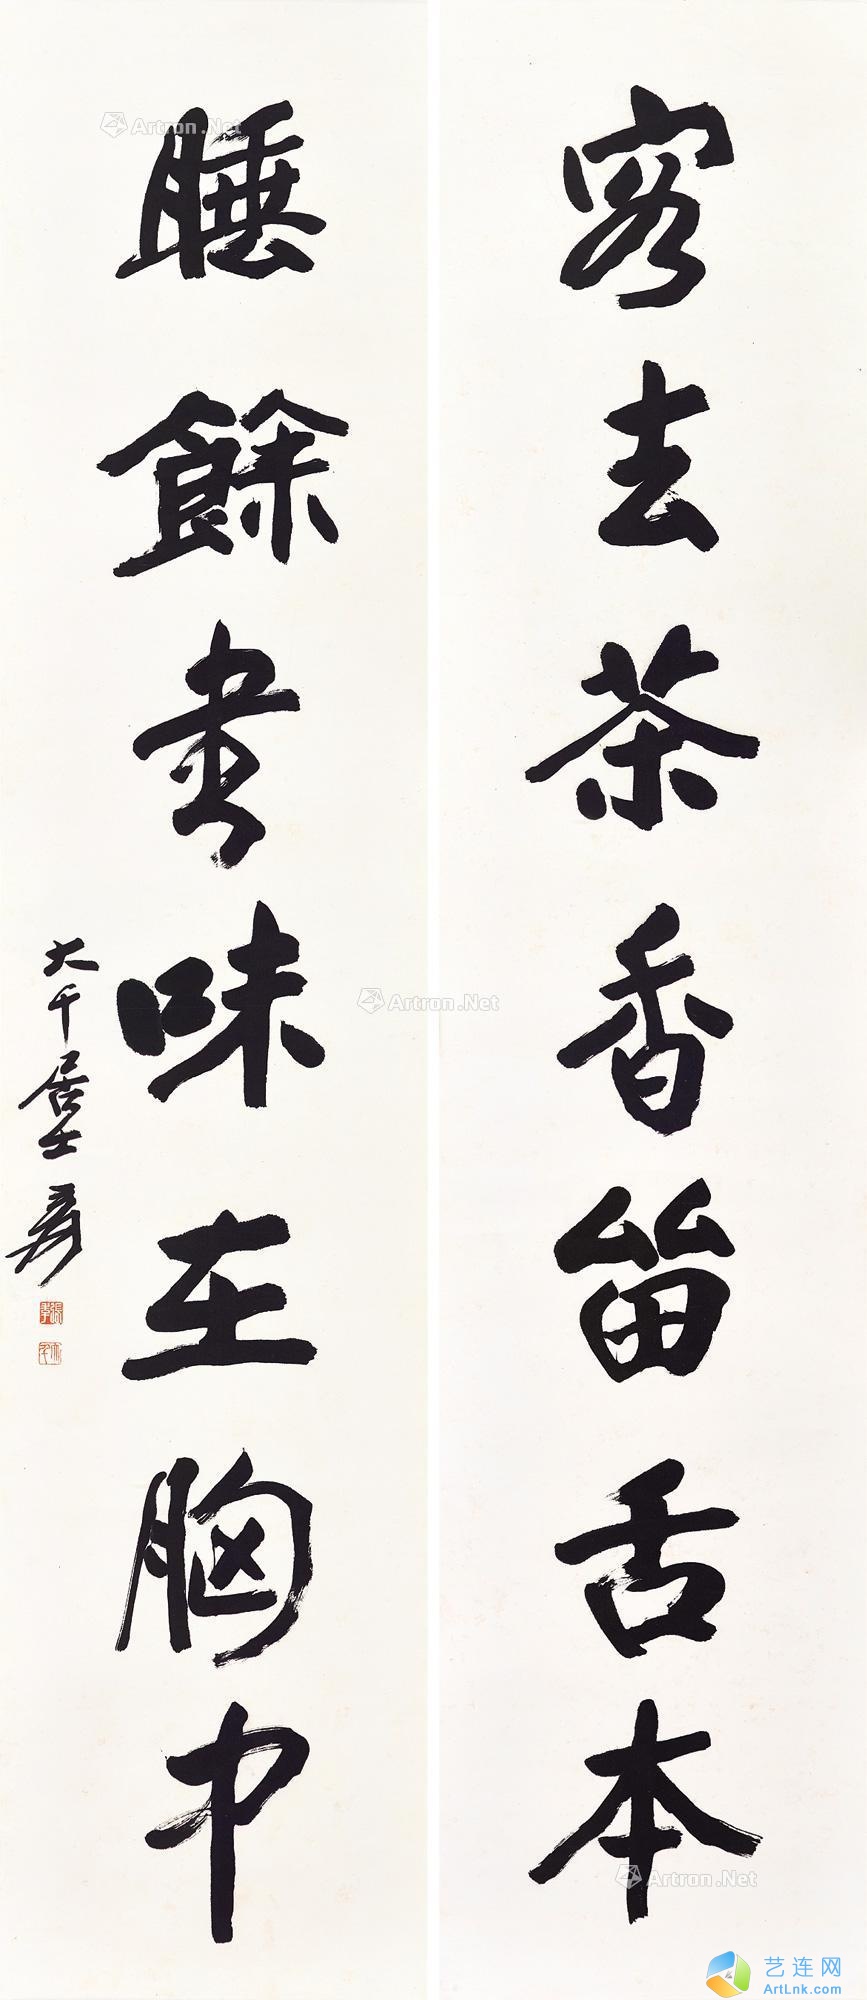 客去茶香留舌本
睡餘書味在胸中
大千居士爰
Artron.Net
Artron.Net
Artron.Net
艺连网
ArtLnk.com